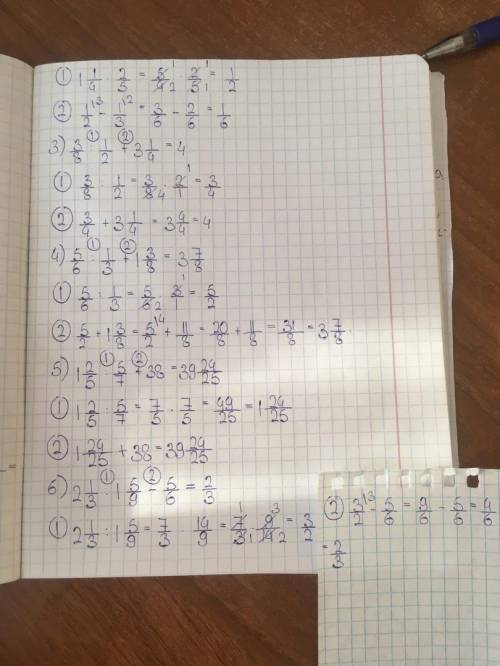 ① 1 1/4 · 2/5 = 5/4 · 2/5 = 1/2
② 1/2 - 1/3 = 3/6 - 2/6 = 1/6
3) 3/8 : 1/2 + 3 1/4 = 4
① 3/8 : 1/2 = 3/8 · 2/1 = 3/4
② 3/4 + 3 1/4 = 3 4/4 = 4
4) 5/6 : 1/3 + 1 3/8 = 3 7/8
① 5/6 : 1/3 = 5/6 · 3/1 = 5/2
② 5/2 + 1 3/8 = 5/2 + 11/8 = 20/8 + 11/8 = 31/8 = 3 7/8
5) 1 2/5 : 5/7 + 38 = 39 24/25
① 1 2/5 : 5/7 = 7/5 · 7/5 = 49/25 = 1 24/25
② 1 24/25 + 38 = 39 24/25
6) 2 1/3 : 1 5/9 - 5/6 = 2/3
① 2 1/3 : 1 5/9 = 7/3 : 14/9 = 7/3 · 9/14 = 3/2
② 3/2 - 5/6 = 9/6 - 5/6 = 4/6
= 2/3